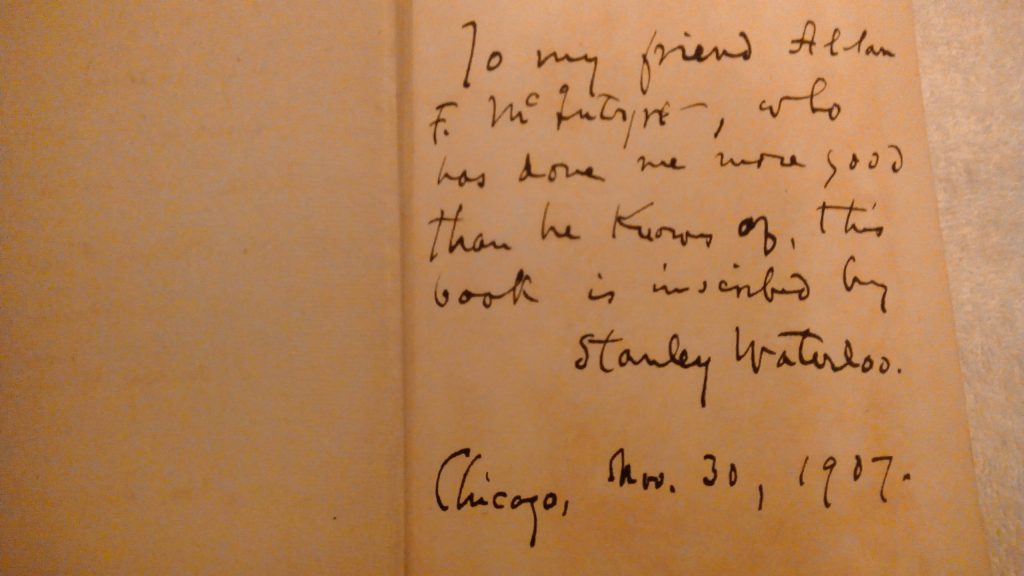 To my friend Allan
F. McIntyre, who
has done me more good
than he knows of, this
book is inscribed by
Stanley Waterloo.
Chicago, Nov. 30, 1907.